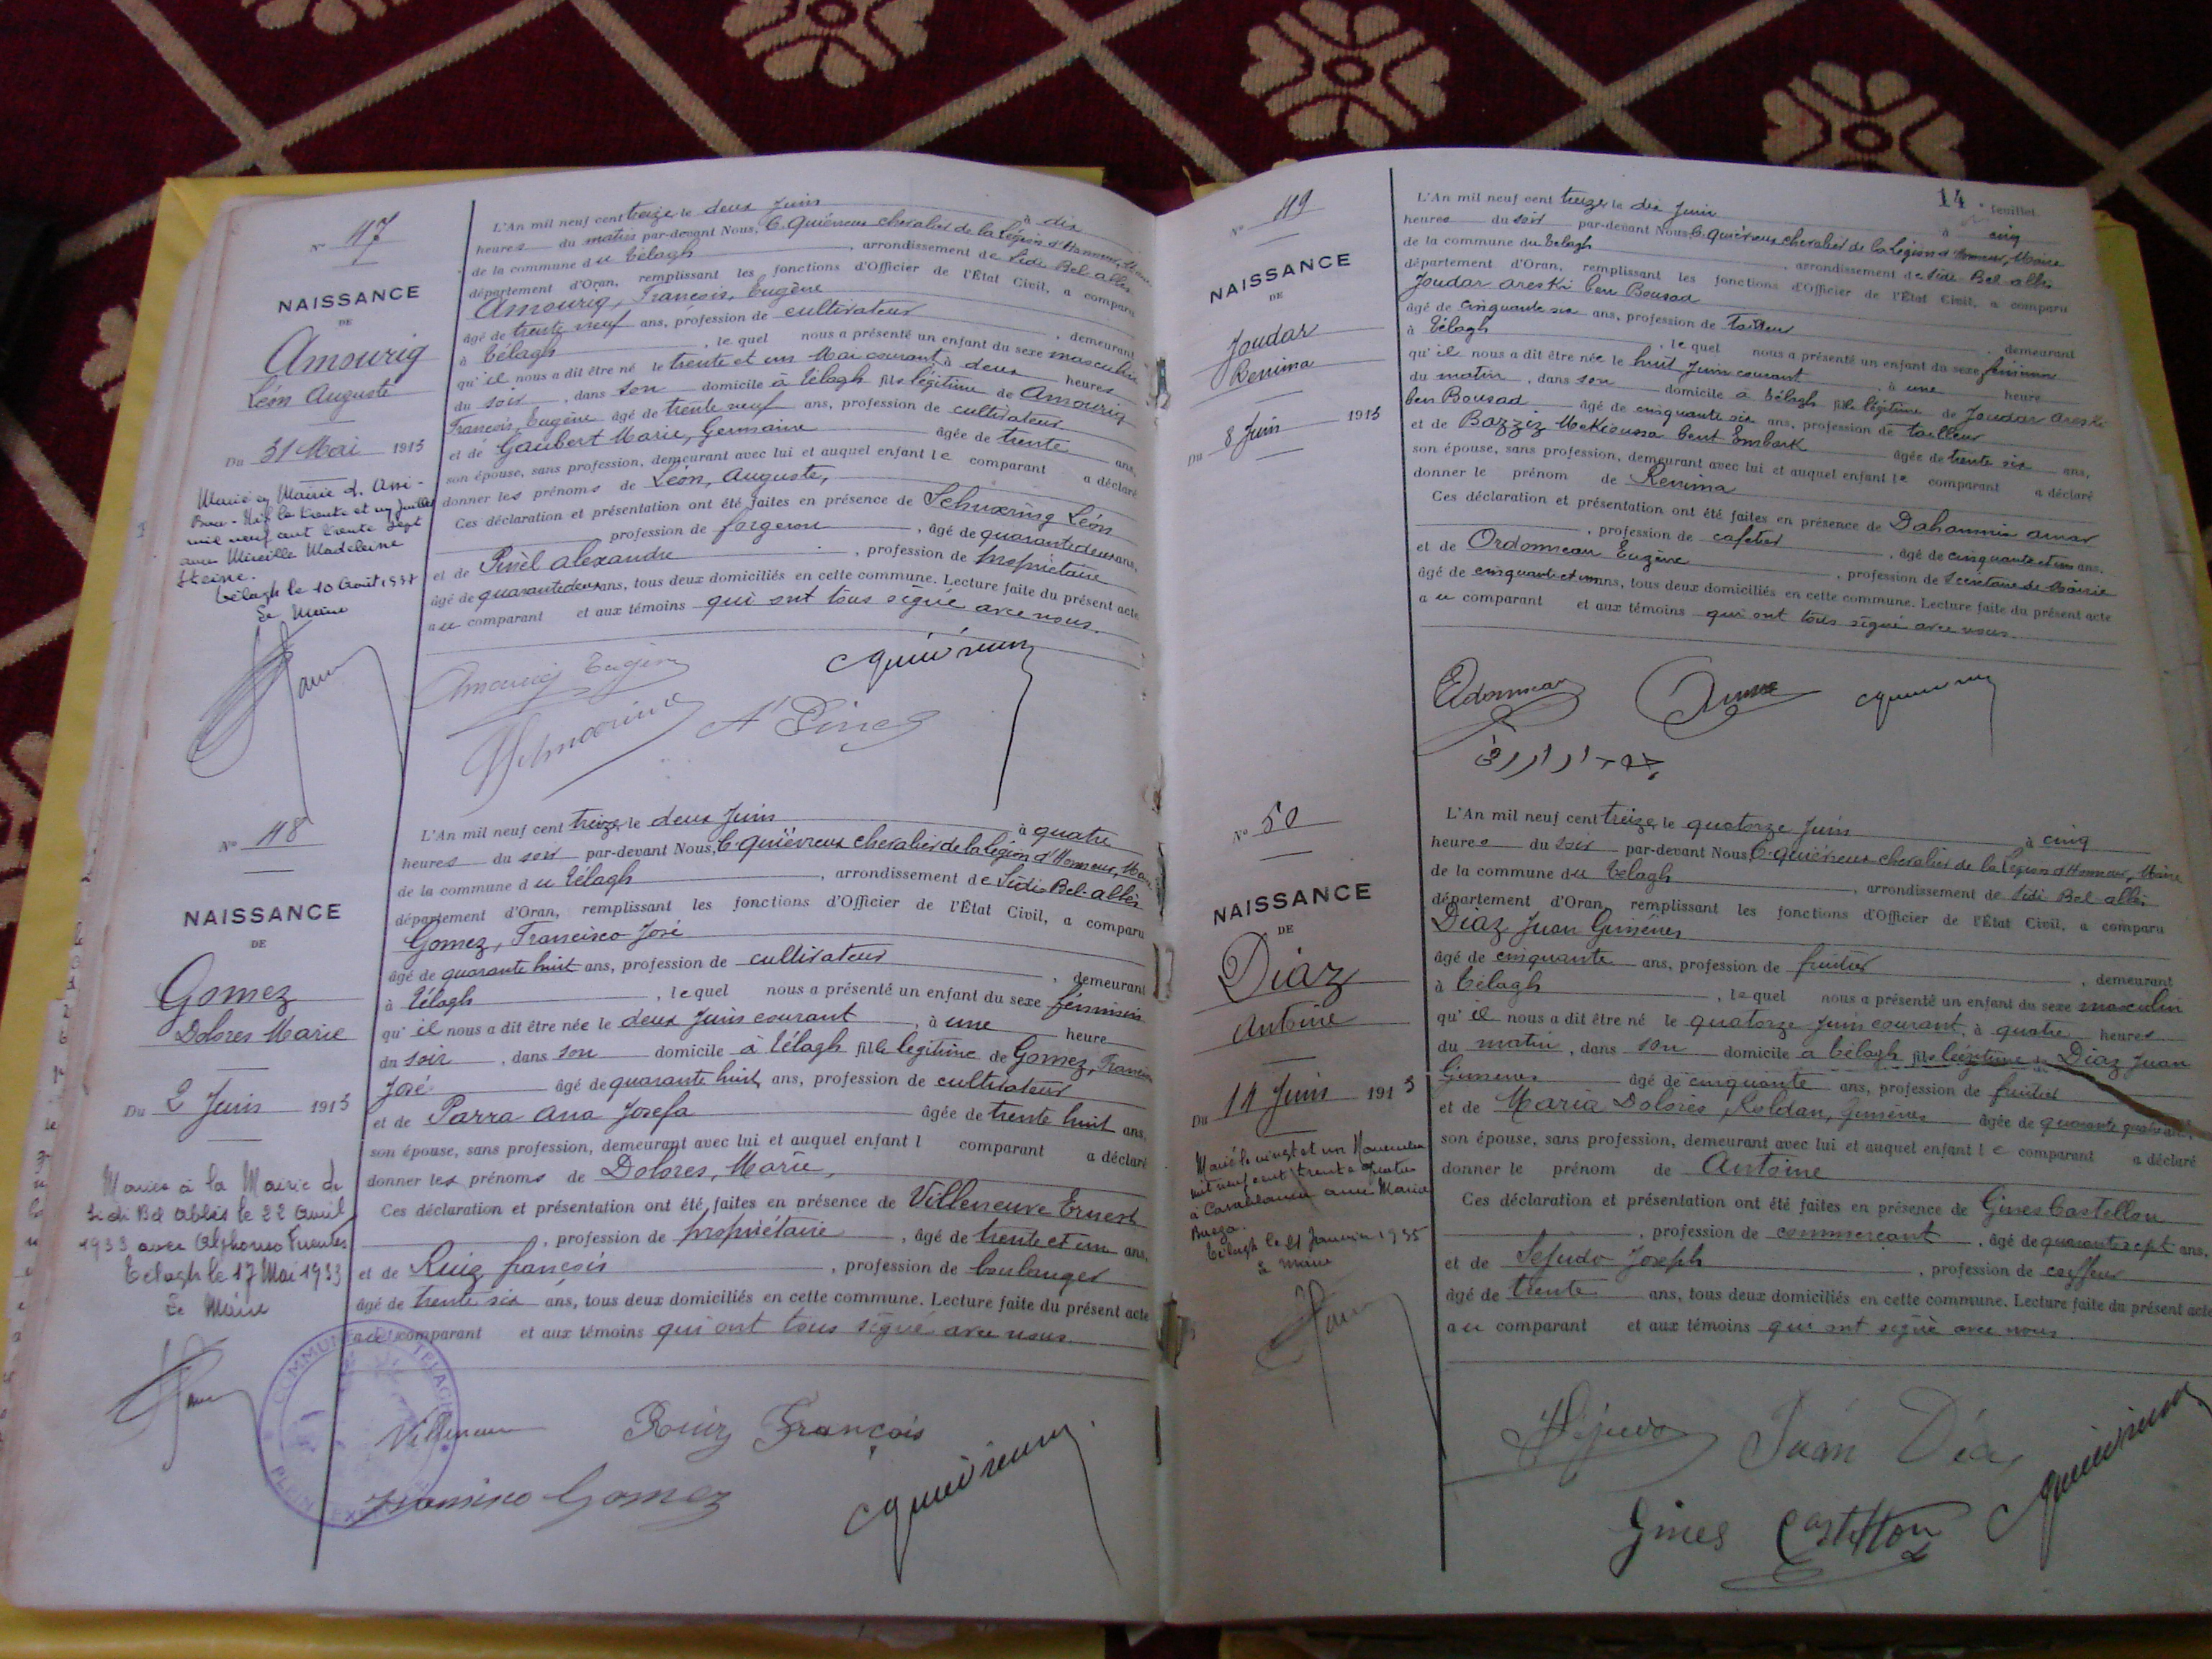 N° 47
NAISSANCE
DE
Amourig
Léon Auguste
Du 31 Mai 1913
Marié en Mairie d'Assi-
Bou-Nif le trente et un Juillet
mil neuf cent trente sept
avec Mireille Madeleine
Steine.
Télagh le 10 Août 1937
Le Maire
L'An mil neuf cent treize, le deux Juin à dix
heures du matin par-devant Nous, C. Quiévreux chevalier de la Légion d'Honneur, Maire
de la commune du Télagh, arrondissement de Sidi Bel-abbès
département d'Oran, remplissant les fonctions d'Officier de l'État Civil, a comparu
Amourig, François, Eugène
âgé de trente neuf ans, profession de cultivateur, demeurant
à Télagh, lequel nous a présenté un enfant du sexe masculin
qu'il nous a dit être né le trente et un Mai courant à deux heures
du soir, dans son domicile à Télagh fils légitime de Amourig
François, Eugène âgé de trente neuf ans, profession de cultivateur
et de Gaubert Marie, Germaine âgée de trente ans,
son épouse, sans profession, demeurant avec lui et auquel enfant le comparant a déclaré
donner les prénoms de Léon, Auguste,
Ces déclaration et présentation ont été faites en présence de Schuxring Léon
profession de forgeron, âgé de quarante deux ans,
et de Pinèl alexandre, profession de propriétaire
âgé de quarante deux ans, tous deux domiciliés en cette commune. Lecture faite du présent acte
au comparant et aux témoins qui ont tous signé avec nous.
Amourig Eugène
CQuiévreux
A Pinel
N° 48
NAISSANCE
DE
Gomez
Dolores Marie
Du 2 Juin 1913
Mariée à la Mairie de
Sidi Bel Abbès le 22 Avril
1933 avec Alphonso Fuentes
Télagh le 17 Mai 1933
Le Maire
L'An mil neuf cent treize, le deux Juin à quatre
heures du soir par-devant Nous, C. Quiévreux chevalier de la Légion d'Honneur, Maire
de la commune du Télagh, arrondissement de Sidi-Bel-abbès
département d'Oran, remplissant les fonctions d'Officier de l'État Civil, a comparu
Gomez, Francisco José
âgé de quarante huit ans, profession de cultivateur, demeurant
à Télagh, lequel nous a présenté un enfant du sexe féminin
qu'il nous a dit être née le deux Juin courant, à une heure
du soir, dans son domicile à Télagh fille légitime de Gomez, Francisco
José âgé de quarante huit ans, profession de cultivateur
et de Parra Ana Josefa âgée de trente huit ans,
son épouse, sans profession, demeurant avec lui et auquel enfant l comparant a déclaré
donner les prénoms de Dolores, Marie,
Ces déclaration et présentation ont été faites en présence de Villeneuve Ernest
, profession de propriétaire, âgé de trente et un ans,
et de Ruiz françois, profession de boulanger
âgé de trente six ans, tous deux domiciliés en cette commune. Lecture faite du présent acte
au comparant et aux témoins qui ont tous signé avec nous.
COMMUNE DU TELAGH
PLEIN EXERCICE
Villeneuve
Ruiz François
Francisco Gomez
CQuiévreux
14e feuillet
N° 49
NAISSANCE
DE
Joudar
Renima
Du 8 Juin 1913
L'An mil neuf cent treize, le dix Juin à cinq
heures du soir par-devant Nous C. Quiévreux chevalier de la Légion d'Honneur, Maire
de la commune du Télagh, arrondissement de Sidi Bel-abbès
département d'Oran, remplissant les fonctions d'Officier de l'État Civil, a comparu
Joudar areski ben Bousad
âgé de cinquante six ans, profession de Tailleur, demeurant
à Télagh, lequel nous a présenté un enfant du sexe féminin
qu'il nous a dit être née le huit Juin courant, à une heure
du matin, dans son domicile à Télagh fille légitime de Joudar areski
ben Bousad âgé de cinquante six ans, profession de tailleur
et de Bazziz Mekioussa bent Embark âgée de trente six ans,
son épouse, sans profession, demeurant avec lui et auquel enfant le comparant a déclaré
donner le prénom de Renima
Ces déclaration et présentation ont été faites en présence de Dahoumis amar
, profession de cafetier, âgé de cinquante et un ans,
et de Ordonneau Eugène, profession de secrétaire de Mairie
âgé de cinquante et un ans, tous deux domiciliés en cette commune. Lecture faite du présent acte
au comparant et aux témoins qui ont tous signé avec nous.
EOrdonneau
CQuiévreux
N° 50
NAISSANCE
DE
Diaz
Antoine
Du 14 Juin 1913
Marié le vingt et un Novembre
mil neuf cent trente quatre
à Casablanca avec Marie
Baeza.
Télagh le 21 Janvier 1935
Le Maire
L'An mil neuf cent treize, le quatorze Juin à cinq
heures du soir par-devant Nous, C. Quiévreux chevalier de la Légion d'Honneur, Maire
de la commune du Télagh, arrondissement de Sidi Bel abbès
département d'Oran, remplissant les fonctions d'Officier de l'État Civil, a comparu
Diaz Juan Giménes
âgé de cinquante ans, profession de fruitier, demeurant
à Télagh, lequel nous a présenté un enfant du sexe masculin
qu'il nous a dit être né le quatorze Juin courant, à quatre heures
du matin, dans son domicile à Télagh fils légitime de Diaz Juan
Gimenes âgé de cinquante ans, profession de fruitier
et de Maria Dolorès Roldan, Gimenes âgée de quarante quatre ans,
son épouse, sans profession, demeurant avec lui et auquel enfant le comparant a déclaré
donner le prénom de Antoine
Ces déclaration et présentation ont été faites en présence de Gines Castellon
, profession de commerçant, âgé de quarante sept ans,
et de Sejudo Joseph, profession de coiffeur
âgé de trente ans, tous deux domiciliés en cette commune. Lecture faite du présent acte
au comparant et aux témoins qui ont signé avec nous.
Séjudo
Juan Diaz
Gines Castellon
CQuiévreux